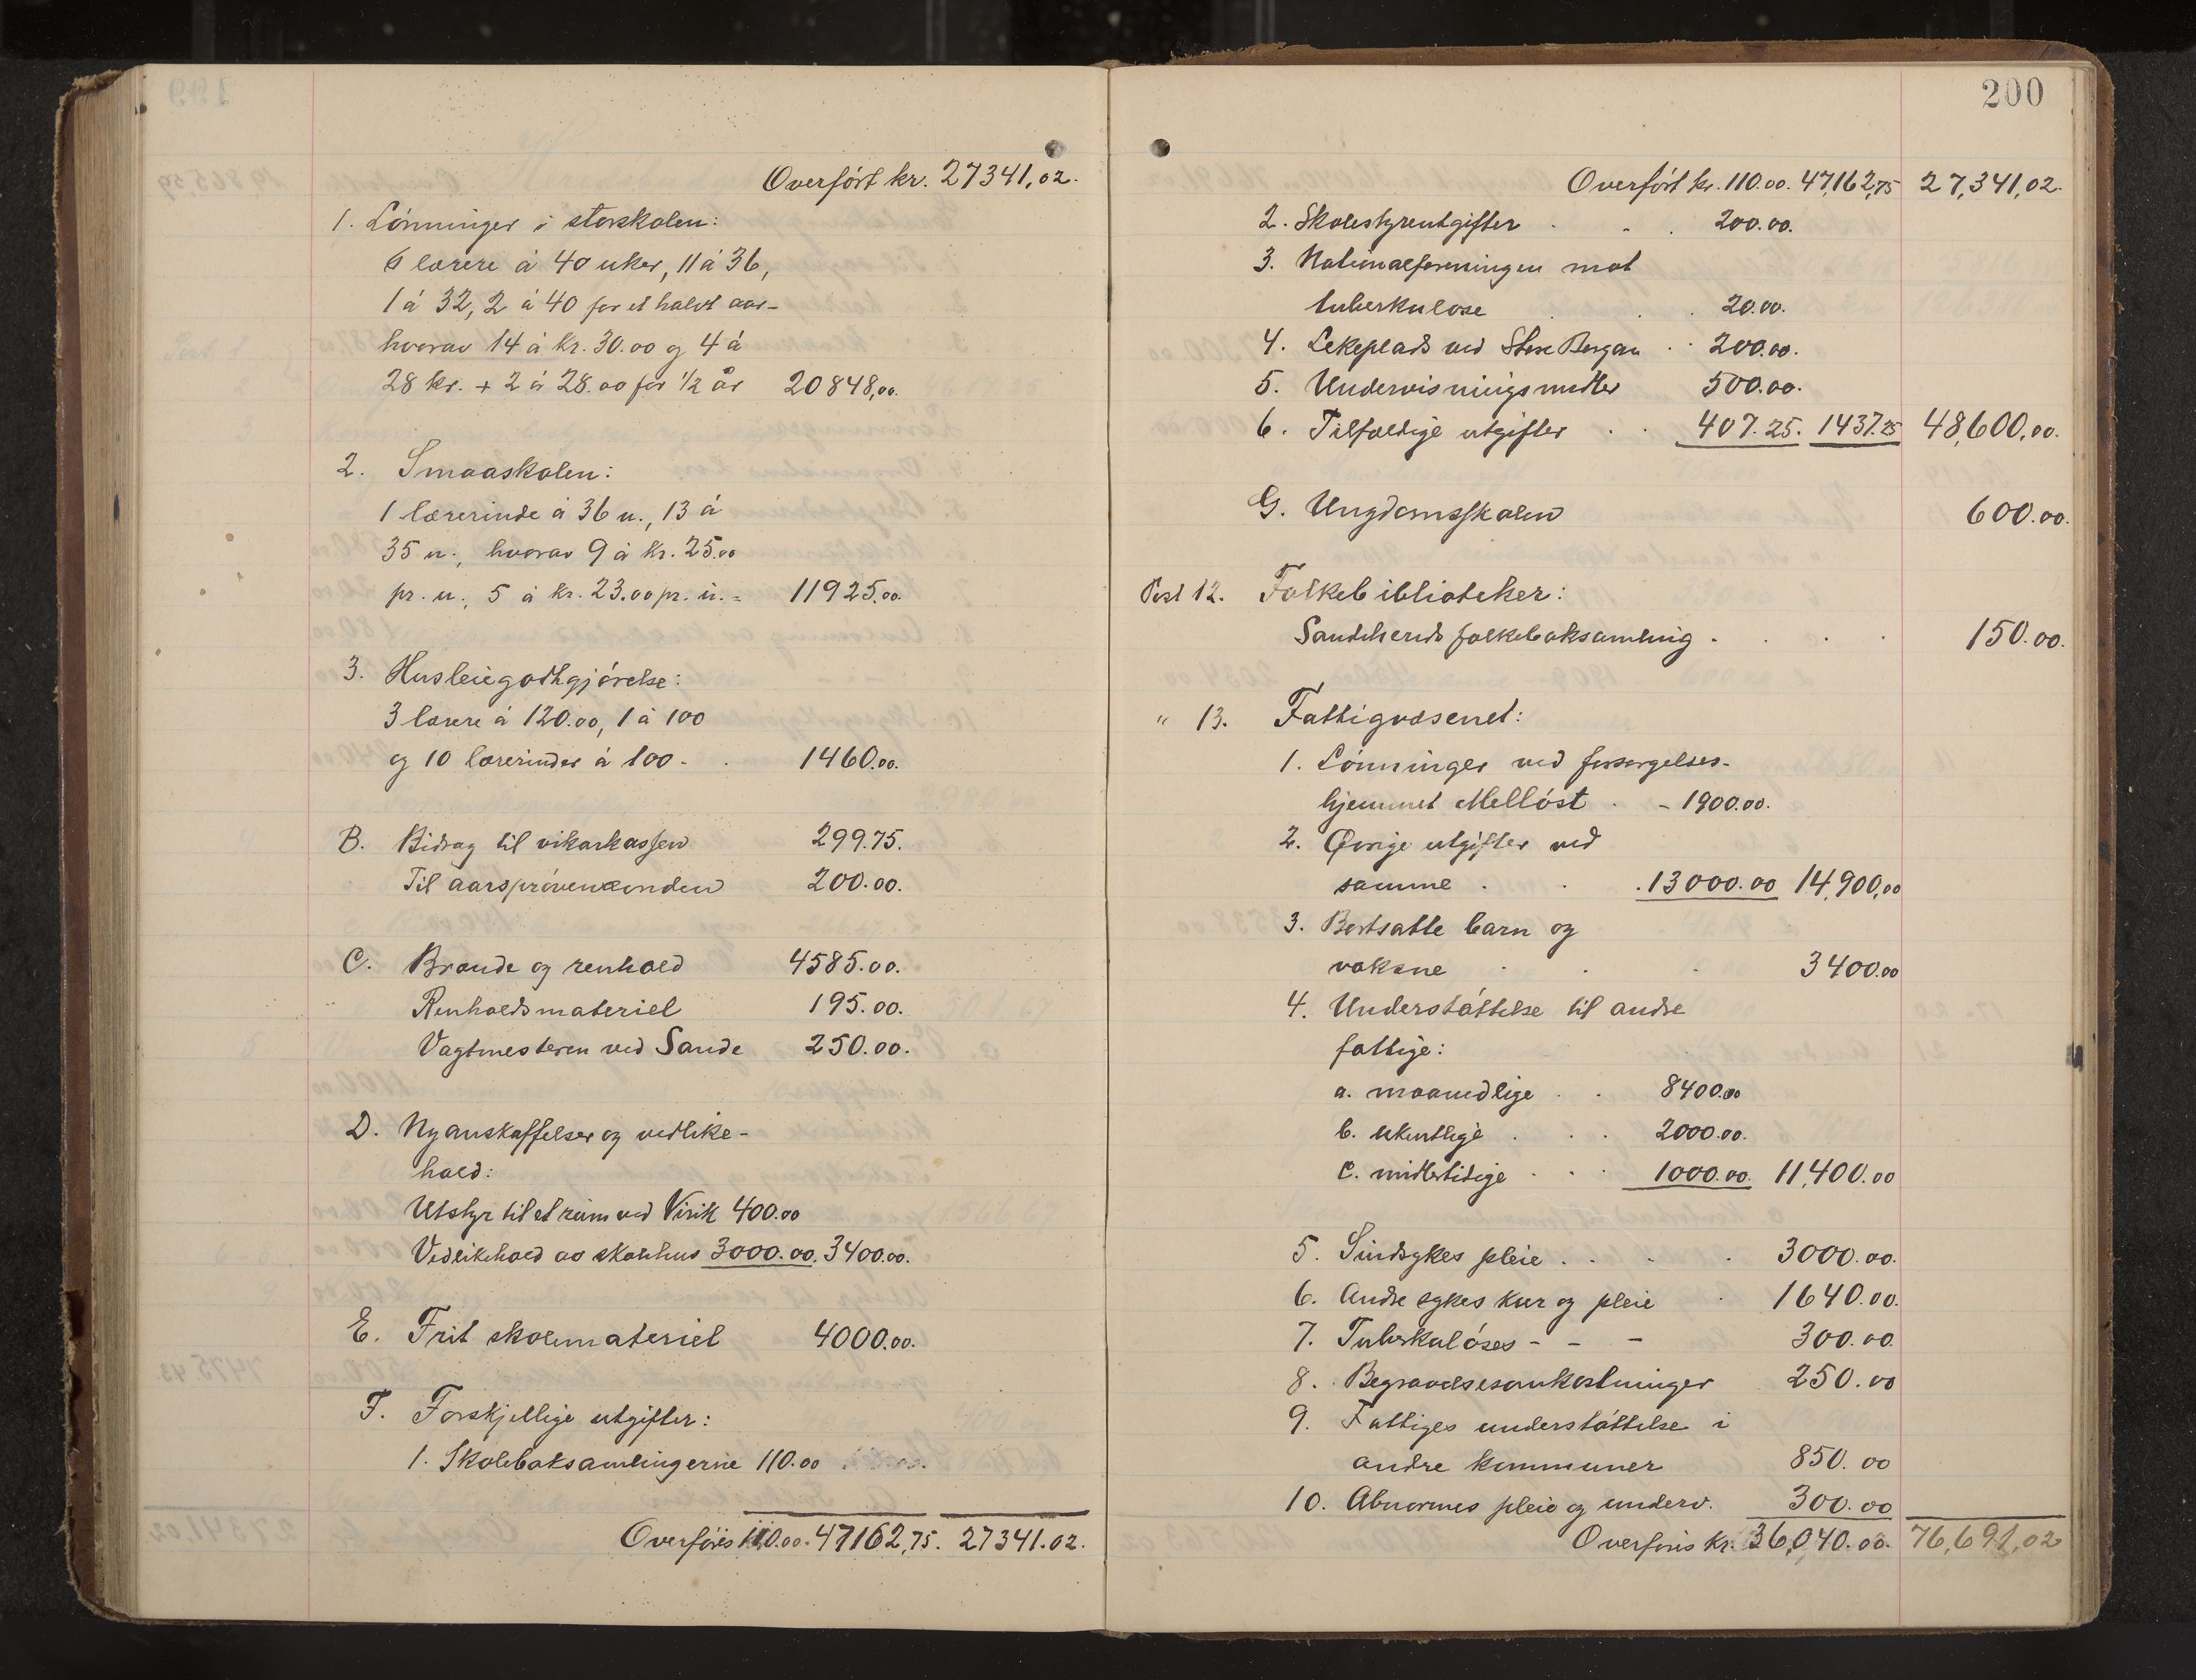 Overført kr. 27341,02.
1. Lønninger i storskolen:
6 lærere á 40 uker, 11 á 36,
1 á 32, 2 á 40 for et halvt aar-
hvorav 14 á kr. 30.00 og 4 á
28 kr. + 2 á 28.00 for 1/2 år 20848,00.
2. Smaaskolen:
1 lærerinde á 36 u., 13 á
35 u., hvorav 9 á kr. 25.00
pr. u., 5 á kr. 23.00 pr. u. = 11925.00.
3. Husleiegodtgjørelse:
3 lærere á 120.00, 1 á 100
og 10 lærerinder á 100 - . 1460.00.
B. Bidrag til vikarkassen 299.75.
Til aarsprøvenævnden 200.00.
C. Brænde og renhold 4585.00.
Renholdsmateriel 195.00.
Vagtmesteren ved Sande 250.00.
D. Nyanskaffelser og vedlike-
hold:
Utstyr til et rum ved Virik 400.00
Vedlikehold av skolehus 3000.00. 3400.00.
E. Frit skolemateriel 4000.00.
F. Forskjellige utgifter:
1. Skoleboksamlingerne 110.00
Overføres 110.00. 47162,75. 27341.02.
200
Overført kr. 110.00. 47,162,75 27,341,02.
2. Skolestyreutgifter . . . 200.00.
3. Nationalforeningen mot
tuberkulose . . . 20.00.
4. Lekeplads ved Store Bergan . . 200.00.
5. Undervisningsmidler 500.00.
6. Tilfældige utgifter . . 407.25. 1437.25 48,600,00.
G. Ungdomsskolen 600.00.
Post 12. Folkebiblioteker:
Sandeherreds folkeboksamling . . . . 150.00.
" 13. Fattigvæsenet:
1. Lønninger ved forsørgelses-
hjemmet Melløst . - 1900.00.
2. Øvrige utgifter ved
samme . . . 13000.00 14,900,00
3. Bortsatte barn og
voksne . . . 3400.00
4. Understøttelse til andre
fattige:
a. maanedlige . . 8400.00
b. ukentlige . . . 2000.00.
c. midlertidige . . . 1000.00. 11,400.00
5. Sindsykes pleie . . . . 3000.00.
6. Andre sykes kur og pleie . 1640.00.
7. Tuberkuløses - - - 300.00.
8. Begravelsesomkostninger 250.00
9. Fattiges understøttelse i
andre kommuner 850.00
10. Abnormes pleie og underv. 300.00
Overføres kr. 36,040.00. 76,691,02